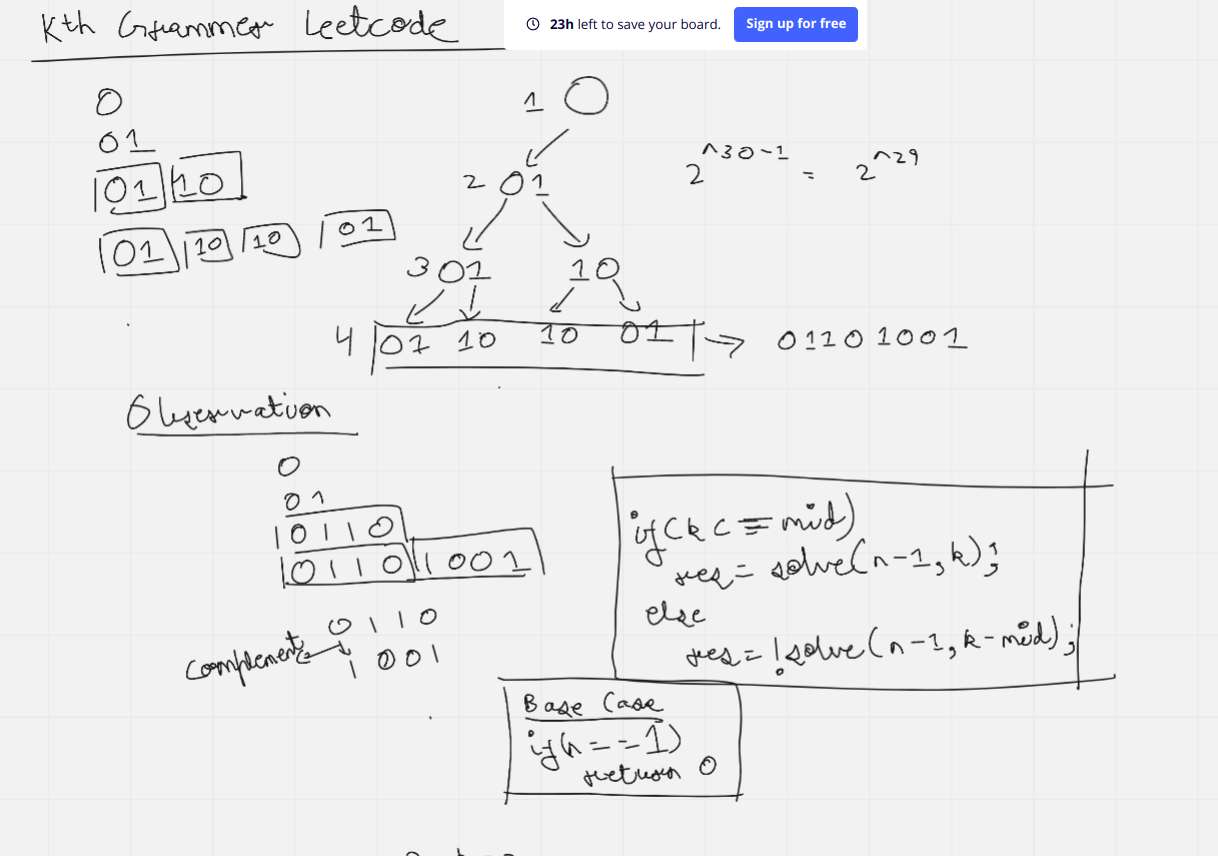 Kth Grammer Leetcode
23h left to save your board.
Sign up for free
0
01
01 10
01 10 10 01
1 0
2 01
3 01 10
4 01 10 10 01 → 01101001
2^30-1 = 2^29
Observation
0
01
0110
0110 1001
0110
complement
1001
if(k <= mid)
res = solve(n-1, k);
else
res = !solve(n-1, k-mid);
Base Case
if(n==1)
return 0